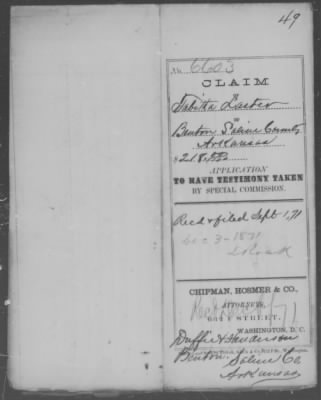 49
No 6603
CLAIM
Tabitha Laster
OF
Benton Saline County
Arkansas
APPLICATION
TO HAVE TESTIMONY TAKEN
BY SPECIAL COMMISSION.
Rec'd & filed Sept 1, 71
3-1871
CHIPMAN, HOSMER & CO.,
ATTORNEYS,
STREET,
WASHINGTON, D. C.
Duffie & Henderson
Benton, Saline Co.
Arkansas